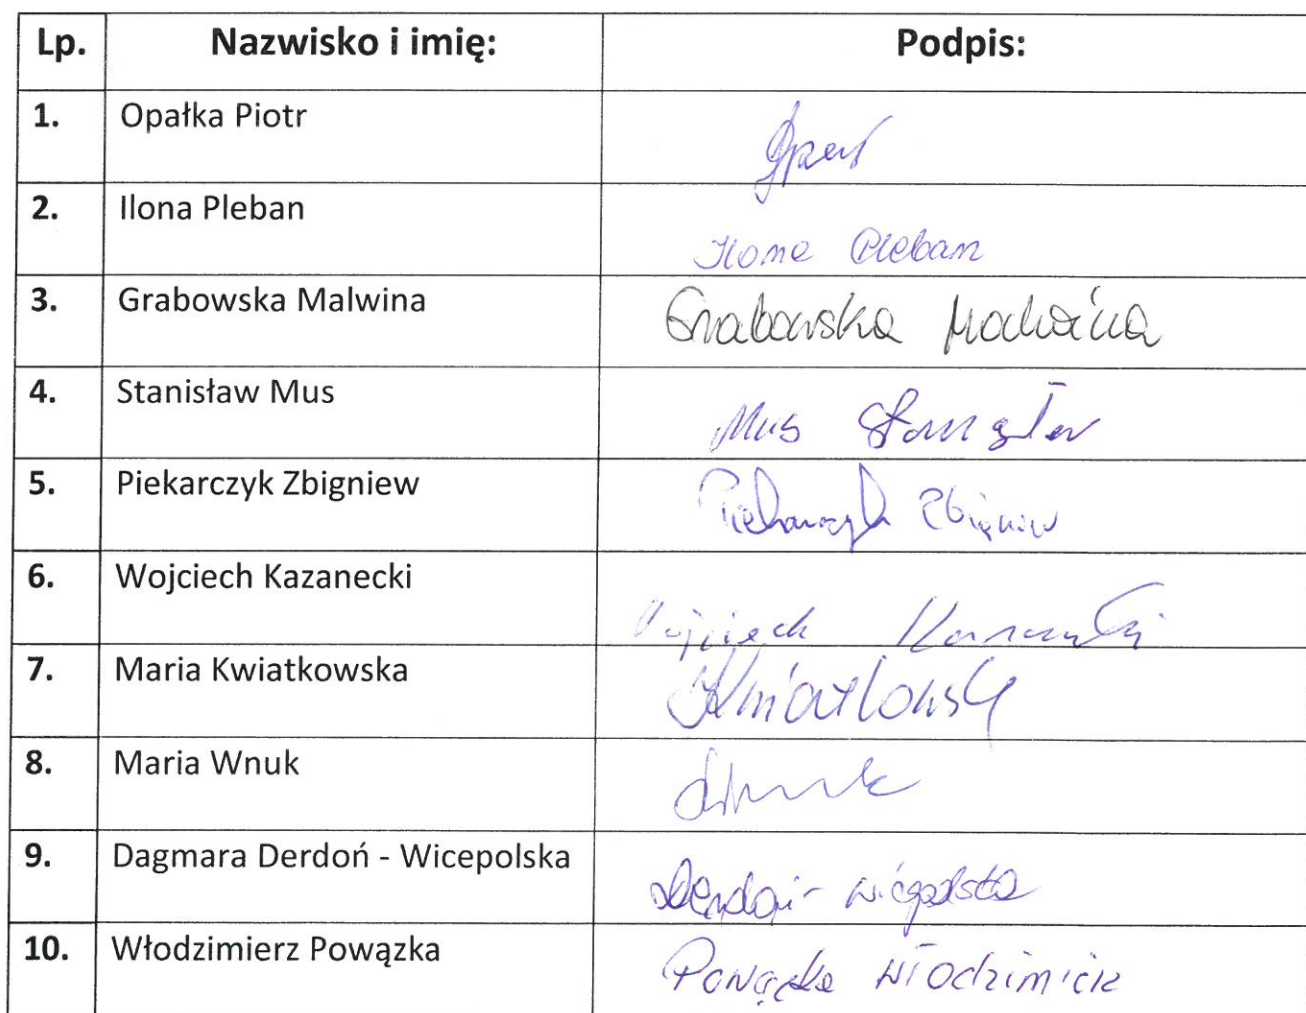 Lp. Nazwisko i imię: Podpis:
1. Opałka Piotr
2. Ilona Pleban Ilona Pleban
3. Grabowska Malwina Grabowska Malwina
4. Stanisław Mus Mus Stanisław
5. Piekarczyk Zbigniew Piekarczyk Zbigniew
6. Wojciech Kazanecki Wojciech Kazanecki
7. Maria Kwiatkowska Kwiatkowsk
8. Maria Wnuk Wnuk
9. Dagmara Derdoń - Wicepolska Derdoń - Wicepolska
10. Włodzimierz Powązka Powązka Włodzimierz